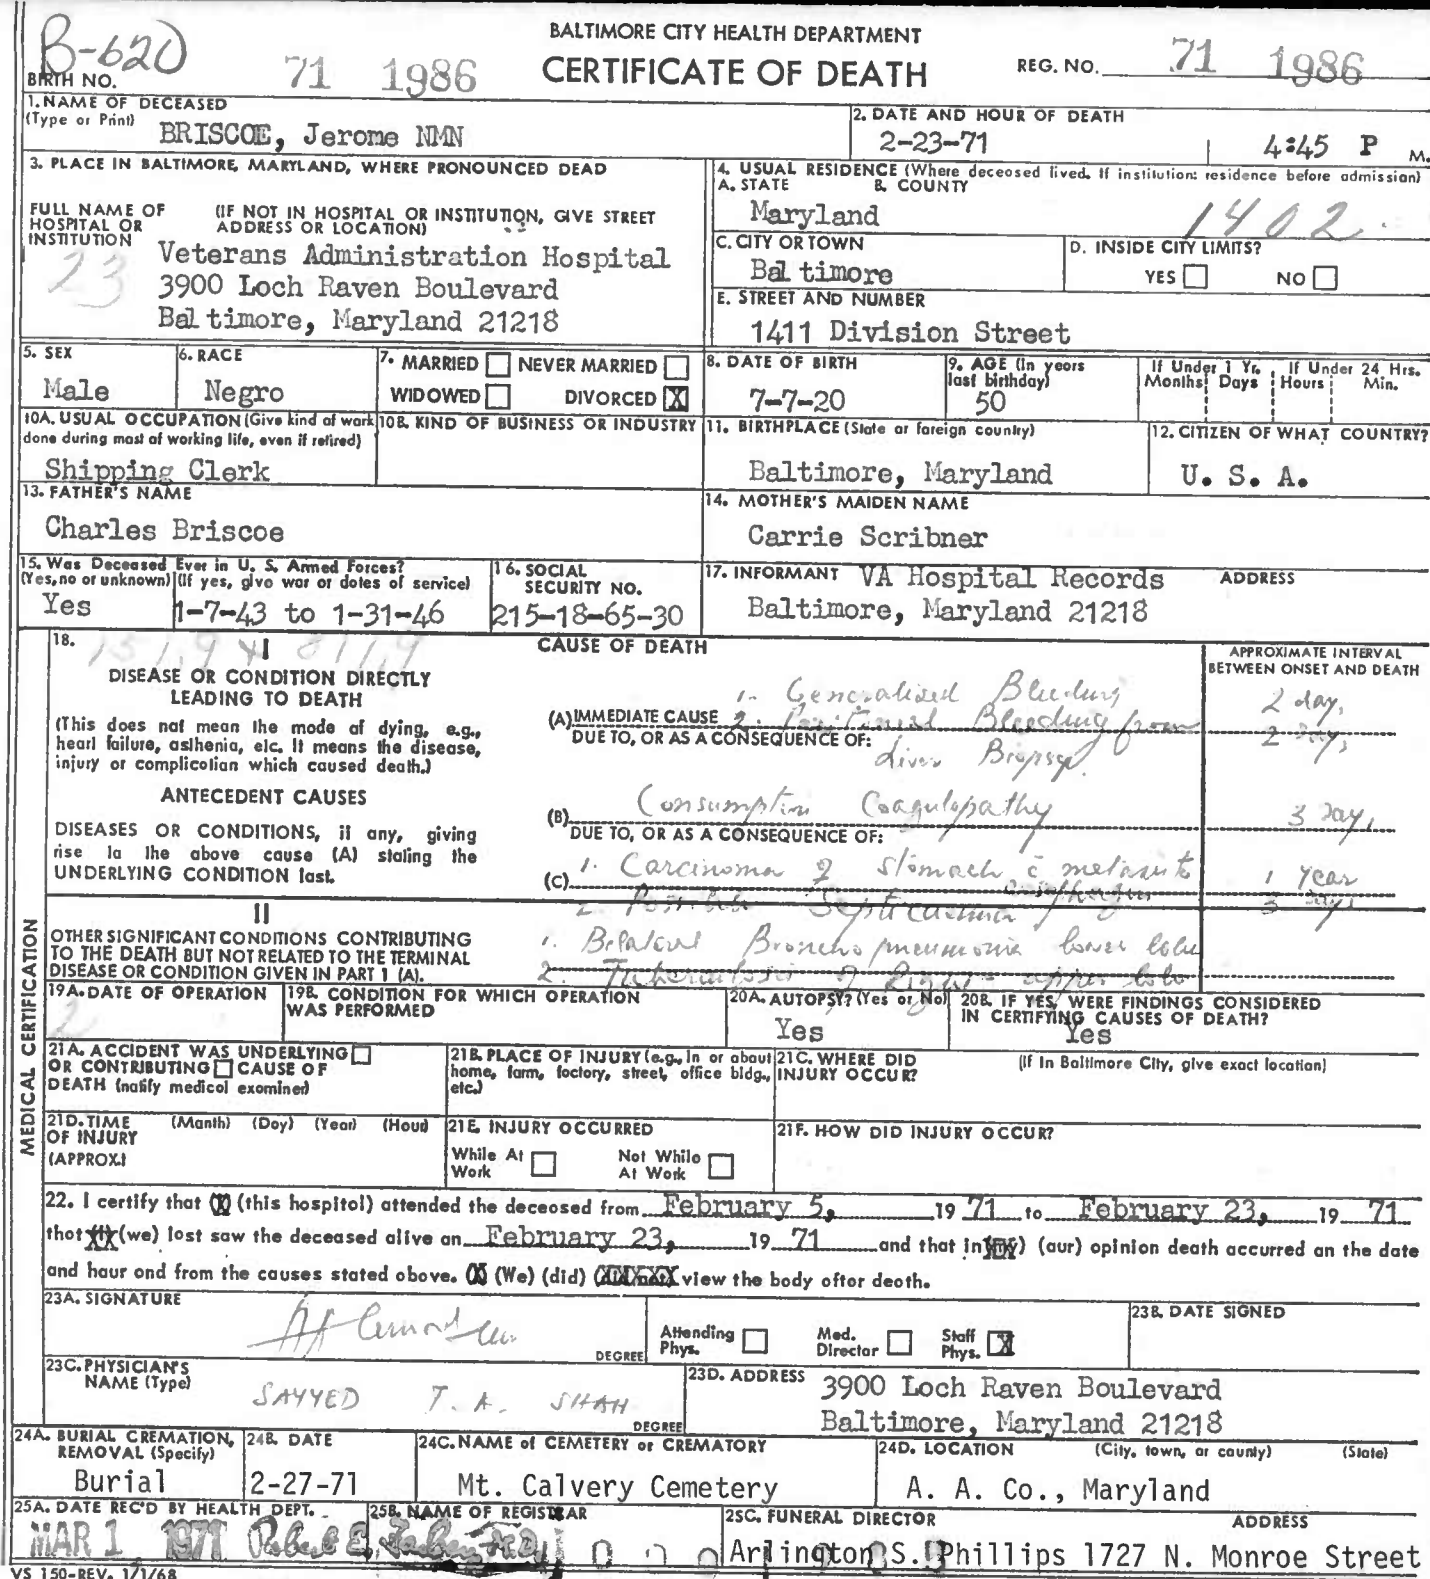 B-620
BALTIMORE CITY HEALTH DEPARTMENT
BIRTH NO. 71 1986 CERTIFICATE OF DEATH REG. NO. 71 1986
1. NAME OF DECEASED
(Type or Print) BRISCOE, Jerome NMN
2. DATE AND HOUR OF DEATH
2-23-71 4:45 P M.
3. PLACE IN BALTIMORE, MARYLAND, WHERE PRONOUNCED DEAD
FULL NAME OF HOSPITAL OR INSTITUTION
(IF NOT IN HOSPITAL OR INSTITUTION, GIVE STREET ADDRESS OR LOCATION)
23
Veterans Administration Hospital
3900 Loch Raven Boulevard
Baltimore, Maryland 21218
4. USUAL RESIDENCE (Where deceased lived. If institution: residence before admission)
A. STATE B. COUNTY
Maryland 1402
C. CITY OR TOWN
Baltimore
D. INSIDE CITY LIMITS?
YES NO
E. STREET AND NUMBER
1411 Division Street
5. SEX
Male
6. RACE
Negro
7. MARRIED NEVER MARRIED
WIDOWED DIVORCED X
8. DATE OF BIRTH
7-7-20
9. AGE (In years last birthday)
50
If Under 1 Yr. If Under 24 Hrs.
Months Days Hours Min.
10A. USUAL OCCUPATION (Give kind of work done during most of working life, even if retired)
Shipping Clerk
10B. KIND OF BUSINESS OR INDUSTRY
11. BIRTHPLACE (State or foreign country)
Baltimore, Maryland
12. CITIZEN OF WHAT COUNTRY?
U. S. A.
13. FATHER'S NAME
Charles Briscoe
14. MOTHER'S MAIDEN NAME
Carrie Scribner
15. Was Deceased Ever in U. S. Armed Forces?
(Yes, no or unknown) (If yes, give war or dates of service)
Yes 1-7-43 to 1-31-46
16. SOCIAL SECURITY NO.
215-18-65-30
17. INFORMANT VA Hospital Records ADDRESS
Baltimore, Maryland 21218
MEDICAL CERTIFICATION
18. I
CAUSE OF DEATH
APPROXIMATE INTERVAL BETWEEN ONSET AND DEATH
DISEASE OR CONDITION DIRECTLY LEADING TO DEATH
(This does not mean the mode of dying, e.g., heart failure, asthenia, etc. It means the disease, injury or complication which caused death.)
1. Generalised Bleeding 2 days
(A) IMMEDIATE CAUSE 2. Peritoneal Bleeding from 2 days
DUE TO, OR AS A CONSEQUENCE OF:
Liver Biopsy
ANTECEDENT CAUSES
DISEASES OR CONDITIONS, if any, giving rise to the above cause (A) stating the UNDERLYING CONDITION last.
(B) Consumption Coagulopathy 3 days
DUE TO, OR AS A CONSEQUENCE OF:
(C) 1. Carcinoma of stomach c̄ metasis to 1 Year
esophagus
2. Possible Septicaemia 3 days
II
OTHER SIGNIFICANT CONDITIONS CONTRIBUTING TO THE DEATH BUT NOT RELATED TO THE TERMINAL DISEASE OR CONDITION GIVEN IN PART 1 (A).
1. Bilateral Bronchopneumonia lower lobe
2. Tuberculosis of Right upper lobe
19A. DATE OF OPERATION
2
19B. CONDITION FOR WHICH OPERATION WAS PERFORMED
20A. AUTOPSY? (Yes or No)
Yes
20B. IF YES, WERE FINDINGS CONSIDERED IN CERTIFYING CAUSES OF DEATH?
Yes
21A. ACCIDENT WAS UNDERLYING OR CONTRIBUTING CAUSE OF DEATH (notify medical examiner)
21B. PLACE OF INJURY (e.g., in or about home, farm, factory, street, office bldg., etc.)
21C. WHERE DID INJURY OCCUR? (If in Baltimore City, give exact location)
21D. TIME OF INJURY (APPROX.) (Month) (Day) (Year) (Hour)
21E. INJURY OCCURRED
While At Work Not While At Work
21F. HOW DID INJURY OCCUR?
22. I certify that (X) (this hospital) attended the deceased from February 5, 19 71 to February 23, 19 71
that XX (we) last saw the deceased alive on February 23, 19 71 and that in (my) (our) opinion death occurred on the date
and hour and from the causes stated above. (X) (We) (did) (XXXXXX) view the body after death.
23A. SIGNATURE
DEGREE
Attending Phys. Med. Director Staff Phys. X
23B. DATE SIGNED
23C. PHYSICIAN'S NAME (Type)
SAYYED T. A. SHAH
DEGREE
23D. ADDRESS 3900 Loch Raven Boulevard
Baltimore, Maryland 21218
24A. BURIAL CREMATION, REMOVAL (Specify)
Burial
24B. DATE
2-27-71
24C. NAME of CEMETERY or CREMATORY
Mt. Calvery Cemetery
24D. LOCATION (City, town, or county) (State)
A. A. Co., Maryland
25A. DATE REC'D BY HEALTH DEPT.
MAR 1 1971
25B. NAME OF REGISTRAR
Robert E. Farber, M.D.
25C. FUNERAL DIRECTOR ADDRESS
Arlington S. Phillips 1727 N. Monroe Street
VS 150-REV. 1/1/68